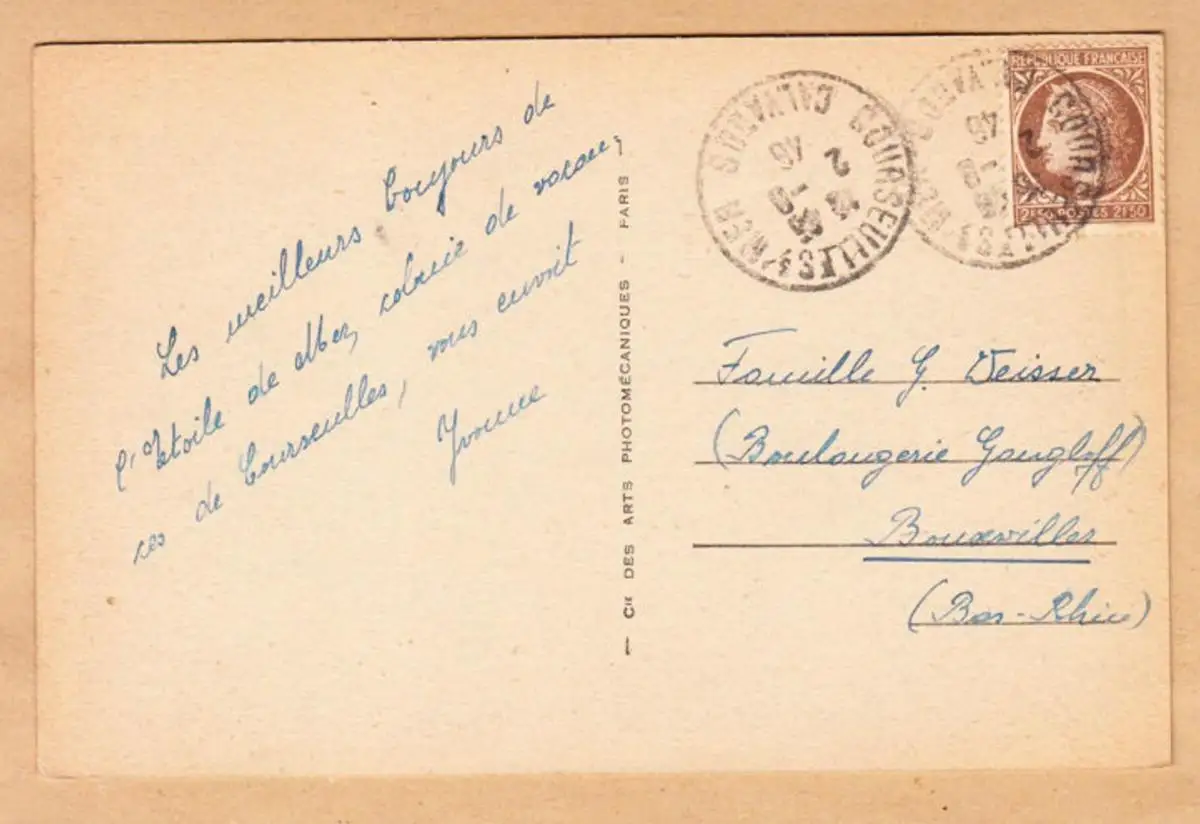 Les meilleurs bonjours de
l'Etoile de Mer, colonie de vacan-
ces de Courseulles, vous envoit
Yvonne
— Cie DES ARTS PHOTOMÉCANIQUES - PARIS
COURSEULLES S/MER
CALVADOS
RÉPUBLIQUE FRANÇAISE
2F50 POSTES 2F50
Famille G. Weisser
(Boulangerie Gangloff)
Bouxwiller
(Bas-Rhin)